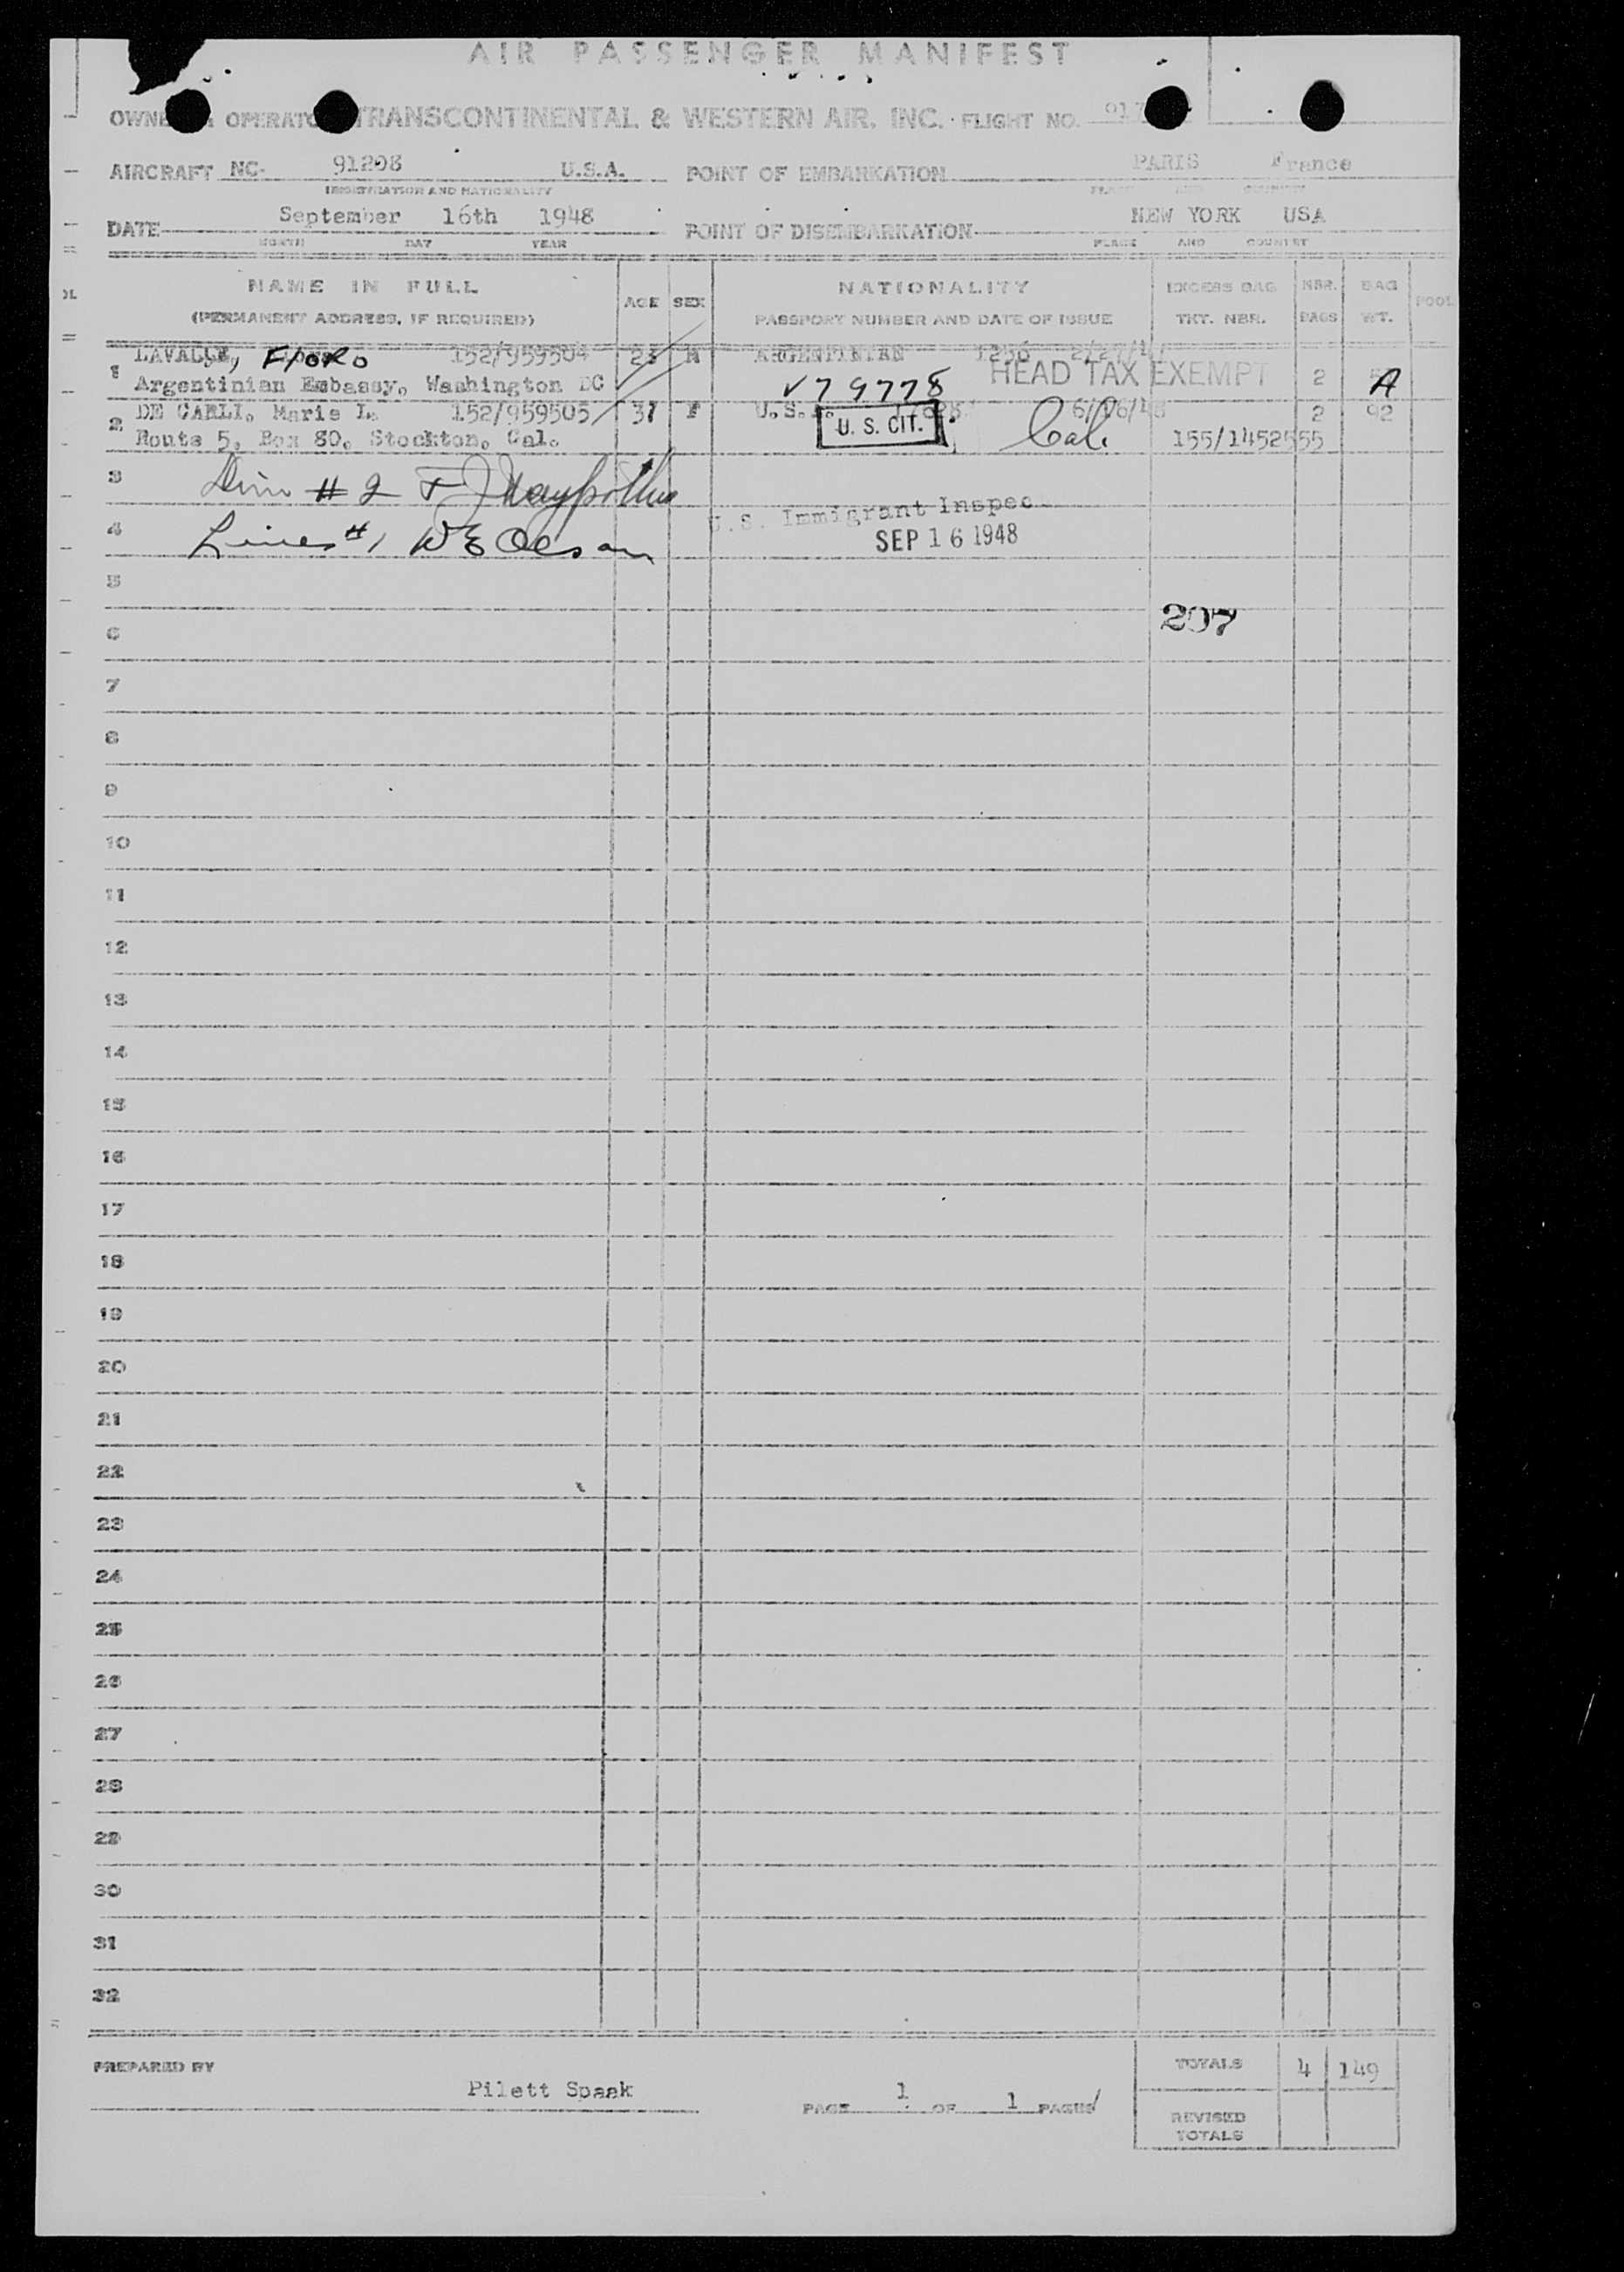 AIR PASSENGER MANIFEST
OWNER OPERATOR TRANSCONTINENTAL & WESTERN AIR, INC. FLIGHT NO.
AIRCRAFT NC- 91208 U.S.A. POINT OF EMBARKATION PARIS France
REGISTRATION AND NATIONALITY PLACE AND COUNTRY
DATE September 16th 1948 POINT OF DISEMBARKATION NEW YORK USA
MONTH DAY YEAR PLACE AND COUNTRY
NAME IN FULL AGE SEX NATIONALITY EXCESS BAG NBR. BAG POOL
(PERMANENT ADDRESS, IF REQUIRED) PASSPORT NUMBER AND DATE OF ISSUE TKT. NBR. BAGS WT.
1 LAVALLE, 152/959504 M ARGENTINIAN 1256
Argentinian Embassy, Washington DC V79778 HEAD TAX EXEMPT 2 A
2 DE CARLI, Marie L. 152/959505 37 F U.S. 2 92
Route 5, Box 80, Stockton, Cal. U. S. CIT. Cal. 155/1452555
3 #2
U.S. Immigrant Inspec
4 Lines #1 W E Olson SEP 16 1948
5
207
6
7
8
9
10
11
12
13
14
15
16
17
18
19
20
21
22
23
24
25
26
27
28
29
30
31
32
PREPARED BY Pilett Spaak PAGE 1 OF 1 PAGES TOTALS 4 149
REVISED TOTALS